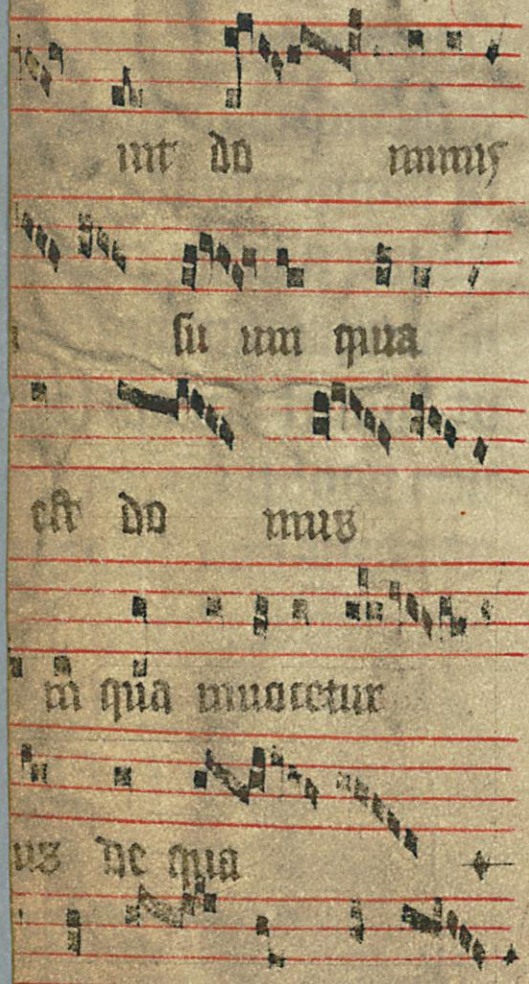 int do minus
su um quia
est do mus
in qua inuocetur
us de qua